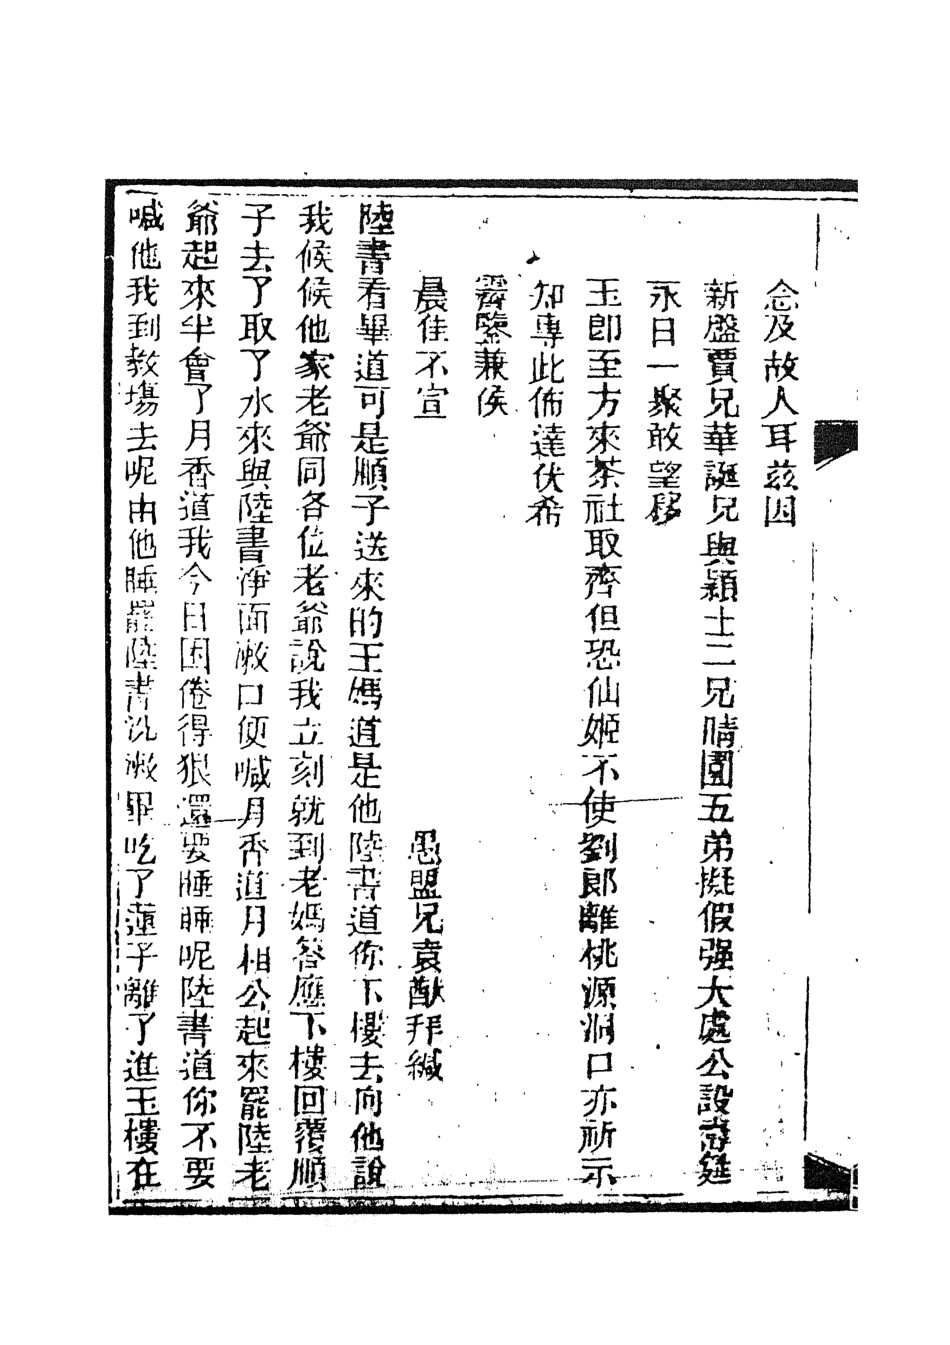 念及故人耳茲因
新盛賈兄華誕兄與穎士二兄晴園五弟擬假强大處公設壽筵
永日一聚敢望移
玉卽至方來茶社取齊但恐仙姬不使劉郎離桃源洞口亦祈示
知專此佈達伏希
霽鑒兼侯
晨佳不宣
愚盟兄袁猷拜緘
陸書看畢道可是順子送來的王媽道是他陸書道你下樓去向他說
我候候他家老爺同各位老爺說我立刻就到老媽答應下樓回覆順
子去了取了水來與陸書淨面漱口便喊月香道月相公起來罷陸老
爺起來半會了月香道我今日困倦得狠還要睡睡呢陸書道你不要
喊他我到敎塲去呢由他睡罷陸書洗漱畢吃了蓮子離了進玉樓在